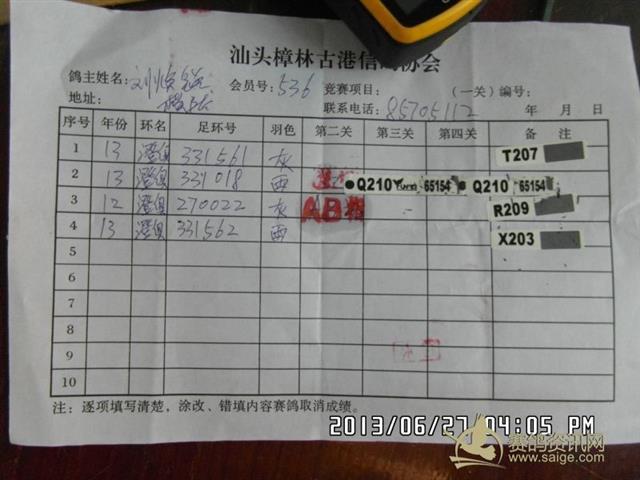 汕头樟林古港信鸽协会
鸽主姓名： 会员号：536 竞赛项目： （一关）编号：
地址： 联系电话：85705112 年 月 日
序号 年份 环名 足环号 羽色 第二关 第三关 第四关 备注
1 13 331561 灰 T207
2 13 331018 雨 Q210 65154 Q210 65154
3 12 270022 灰 AB R209
4 13 331562 雨 X203
5
6
7
8
9
10
注：逐项填写清楚，涂改、错填内容赛鸽取消成绩。
2013/06/27 04:05 PM
赛鸽资讯网
www.saige.com